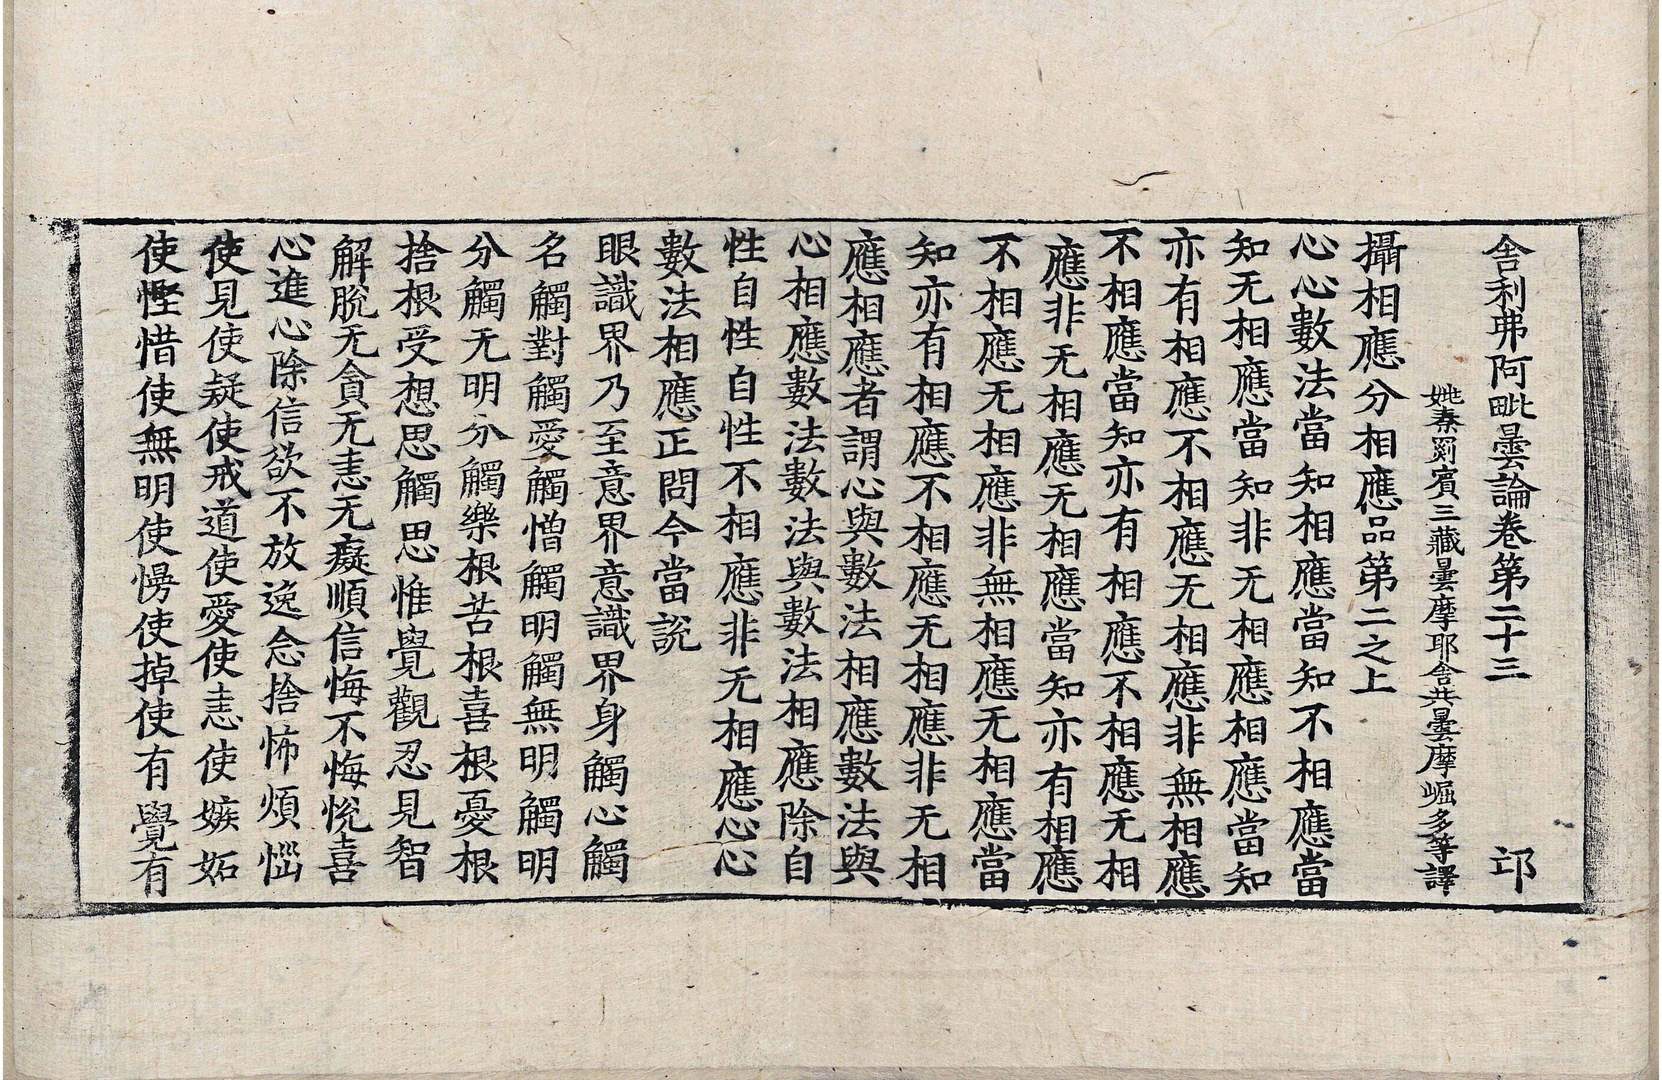 舎利弗阿毗曇論卷第二十三　邛
姚秦罽賓三藏曇摩耶舎共曇摩崛多等譯
攝相應分相應品第二之上
心心數法當知相應當知不相應當
知无相應當知非无相應相應當知
亦有相應不相應无相應非無相應
不相應當知亦有相應不相應无相
應非无相應无相應當知亦有相應
不相應无相應非無相應无相應當
知亦有相應不相應无相應非无相
應相應者謂心與數法相應數法與
心相應數法數法與數法相應除自
性自性自性不相應非无相應心心
數法相應正問今當說
眼識界乃至意界意識界身觸心觸
名觸對觸愛觸憎觸明觸無明觸明
分觸无明分觸樂根苦根喜根憂根
捨根受想思觸思惟覺觀忍見智
解脫无貪无恚无癡順信悔不悔悅喜
心進心除信欲不放逸念捨怖煩惱
使見使疑使戒道使愛使恚使嫉妬
使慳惜使無明使慢使掉使有覺有